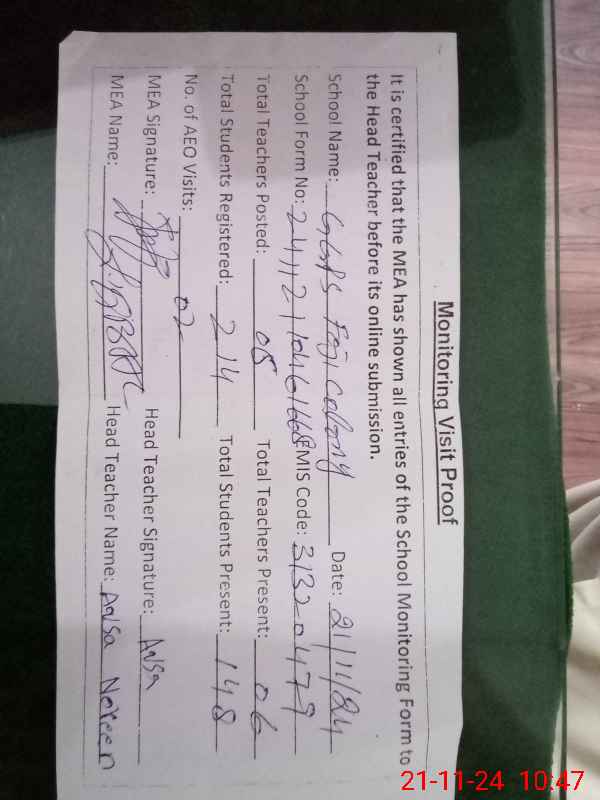 Monitoring Visit Proof
It is certified that the MEA has shown all entries of the School Monitoring Form to
the Head Teacher before its online submission.
School Name: GGPS Foji Colony Date: 21/11/24
School Form No: EMIS Code: 31320479
Total Teachers Posted: 08 Total Teachers Present: 06
Total Students Registered: 214 Total Students Present: 148
No. of AEO Visits: 02
MEA Signature: Head Teacher Signature: Aqsa
MEA Name: Head Teacher Name: Aqsa Noreen
21-11-24 10:47